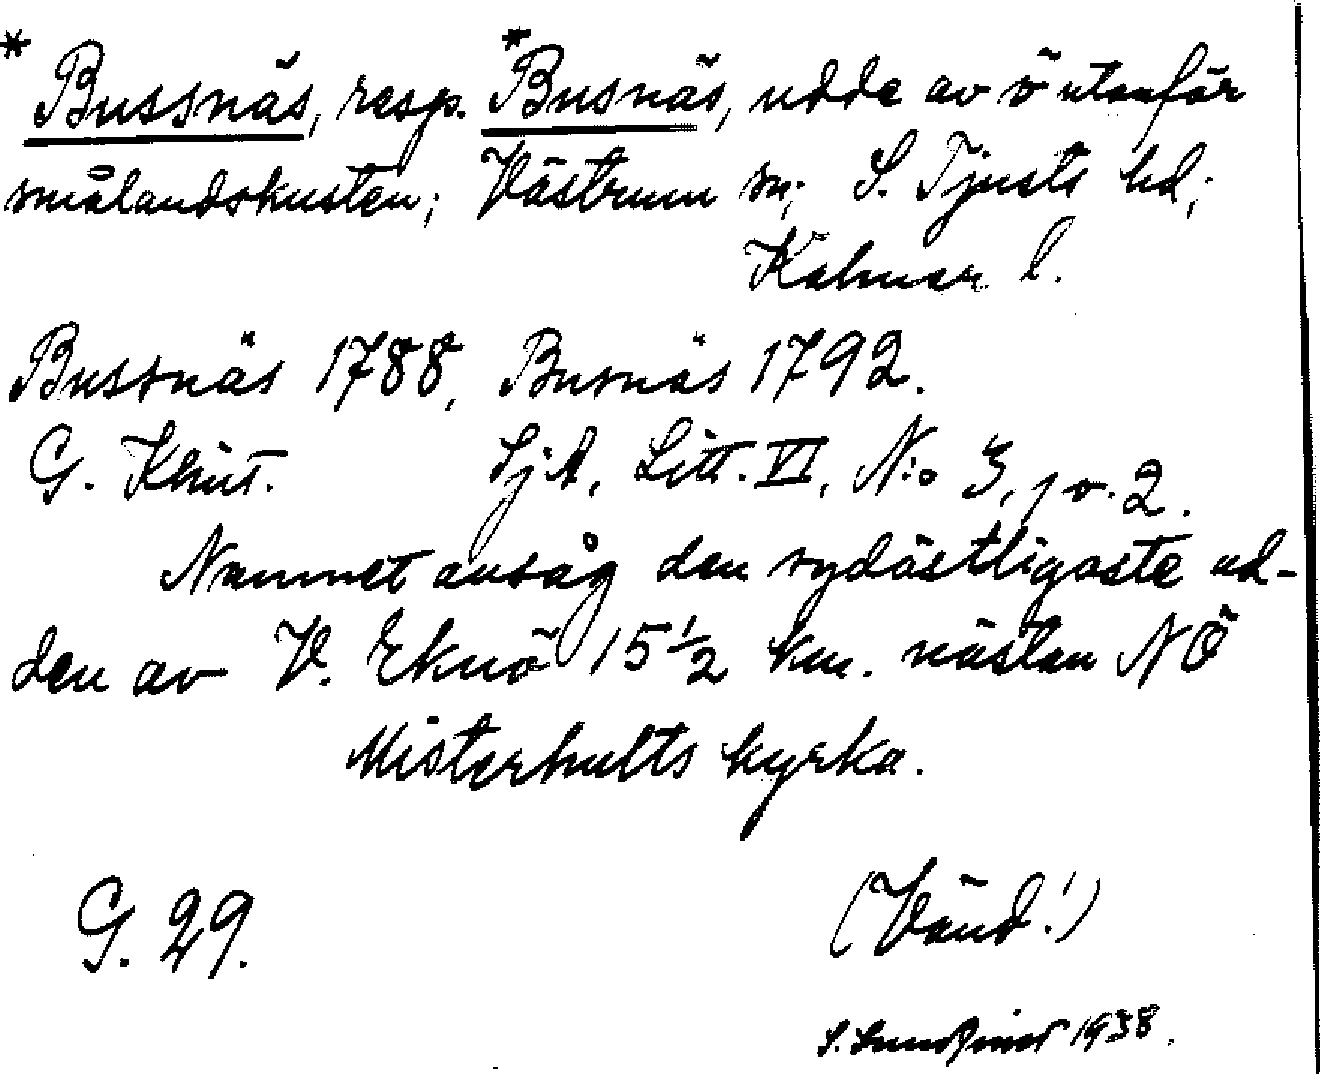 *Bussnäs, resp. *Busnäs, udde av ö utanför
smålandskusten; Västrum sn; S. Tjusts hd;
Kalmar l.
Bussnäs 1788, Busnäs 1792.
G. Klint. SjA, Litt. VI, N:o 3, 1 o. 2.
Namnet avsåg den sydöstligaste ud-
den av V. Eknö 15 1/2 km. nästan NÖ
Misterhults kyrka.
G. 29.
(Vänd!)
S. 1938.